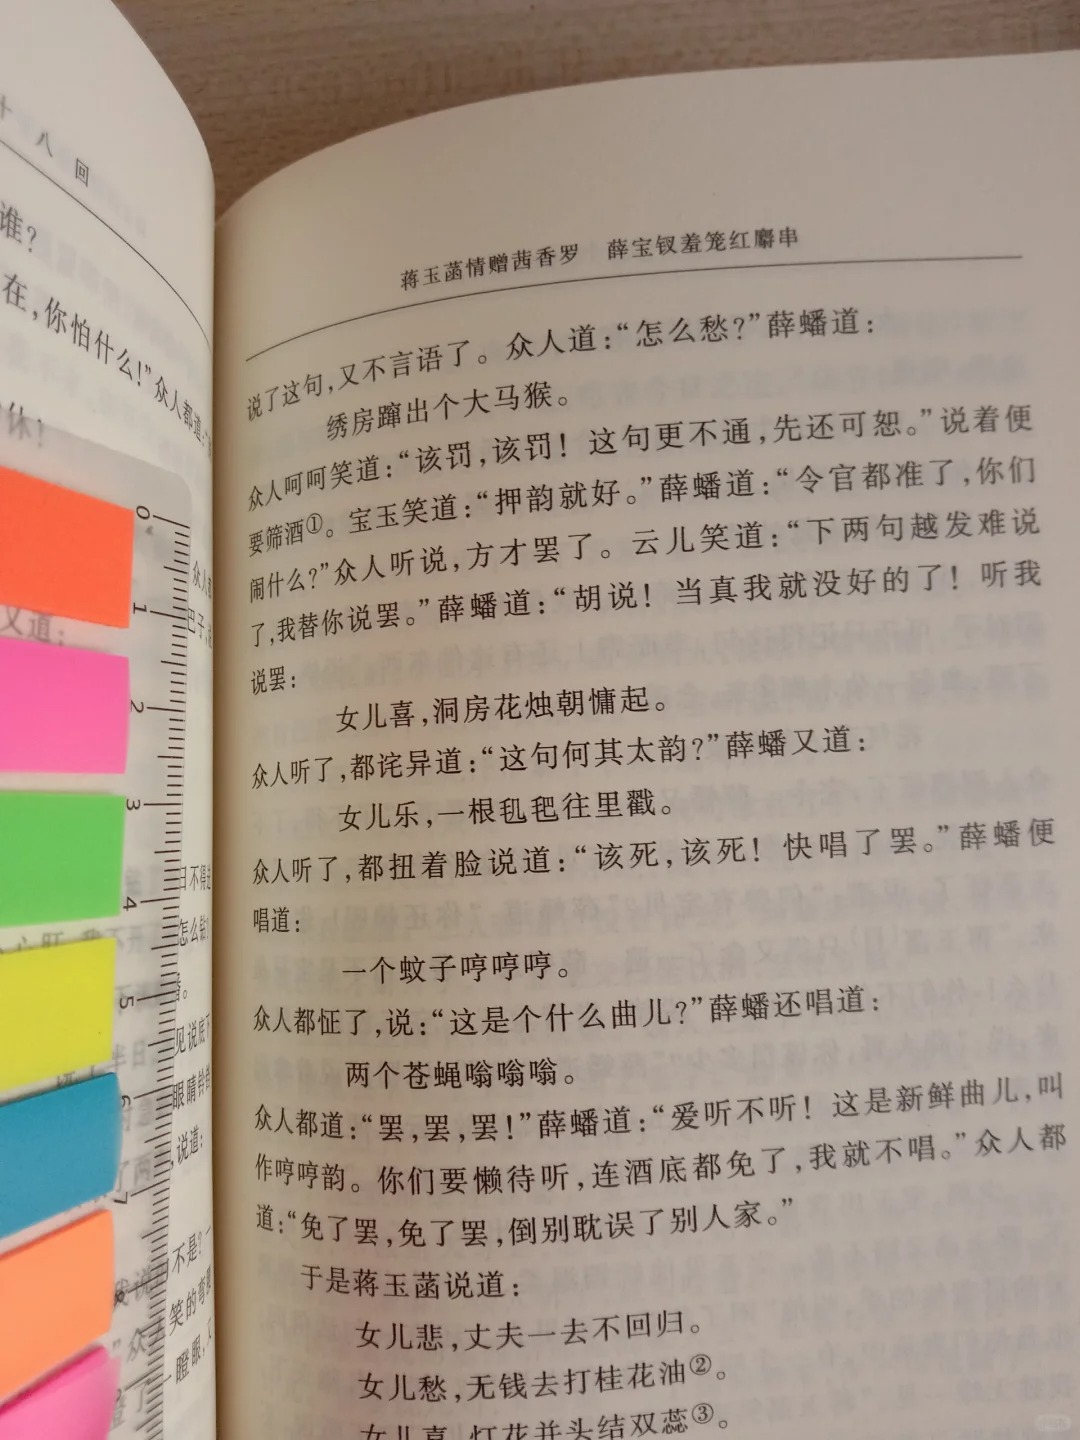 十八回
谁?
在,你怕什么!”众人都道:“
休!
又道:
众人道
巴子
日不得
怎么
见说底下
眼睛铃铛
,说道:
不是?
笑的弯腰
瞪眼,
0
1
2
3
4
5
6
7
蒋玉菡情赠茜香罗 薛宝钗羞笼红麝串
说了这句,又不言语了。众人道:“怎么愁?”薛蟠道:
绣房蹿出个大马猴。
众人呵呵笑道:“该罚,该罚!这句更不通,先还可恕。”说着便
要筛酒①。宝玉笑道:“押韵就好。”薛蟠道:“令官都准了,你们
闹什么?”众人听说,方才罢了。云儿笑道:“下两句越发难说
了,我替你说罢。”薛蟠道:“胡说!当真我就没好的了!听我
说罢:
女儿喜,洞房花烛朝慵起。
众人听了,都诧异道:“这句何其太韵?”薛蟠又道:
女儿乐,一根𣬠𣬶往里戳。
众人听了,都扭着脸说道:“该死,该死!快唱了罢。”薛蟠便
唱道:
一个蚊子哼哼哼。
众人都怔了,说:“这是个什么曲儿?”薛蟠还唱道:
两个苍蝇嗡嗡嗡。
众人都道:“罢,罢,罢!”薛蟠道:“爱听不听!这是新鲜曲儿,叫
作哼哼韵。你们要懒待听,连酒底都免了,我就不唱。”众人都
道:“免了罢,免了罢,倒别耽误了别人家。”
于是蒋玉菡说道:
女儿悲,丈夫一去不回归。
女儿愁,无钱去打桂花油②。
女儿喜,灯花并头结双蕊③。